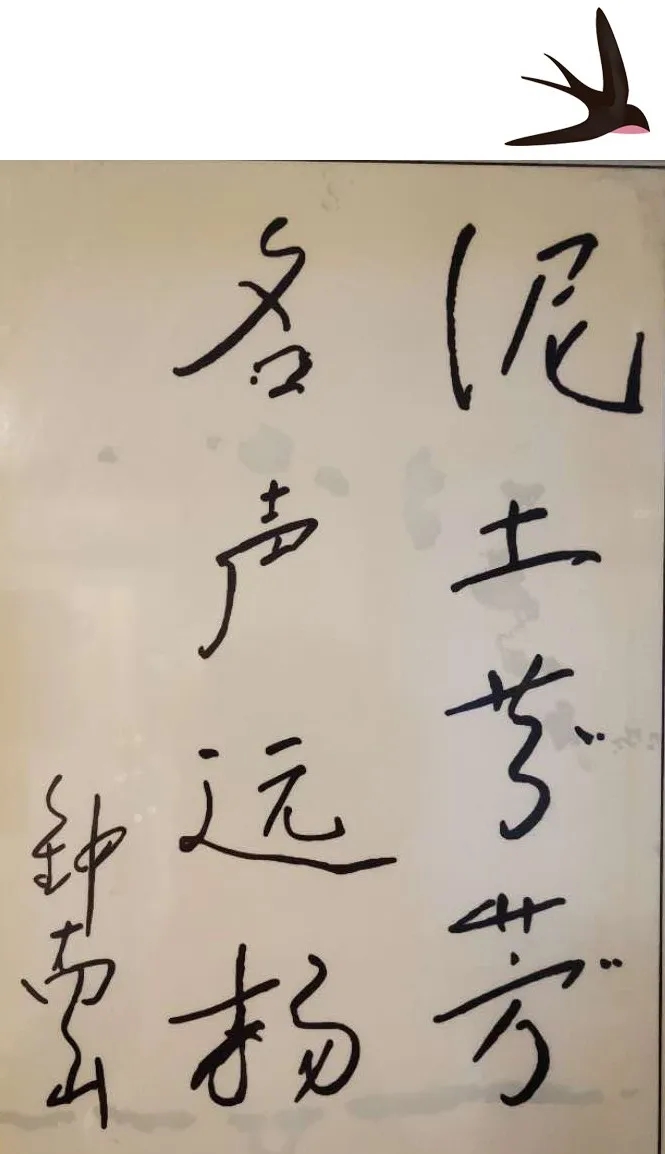 泥土芬芳
名声远扬
钟南山